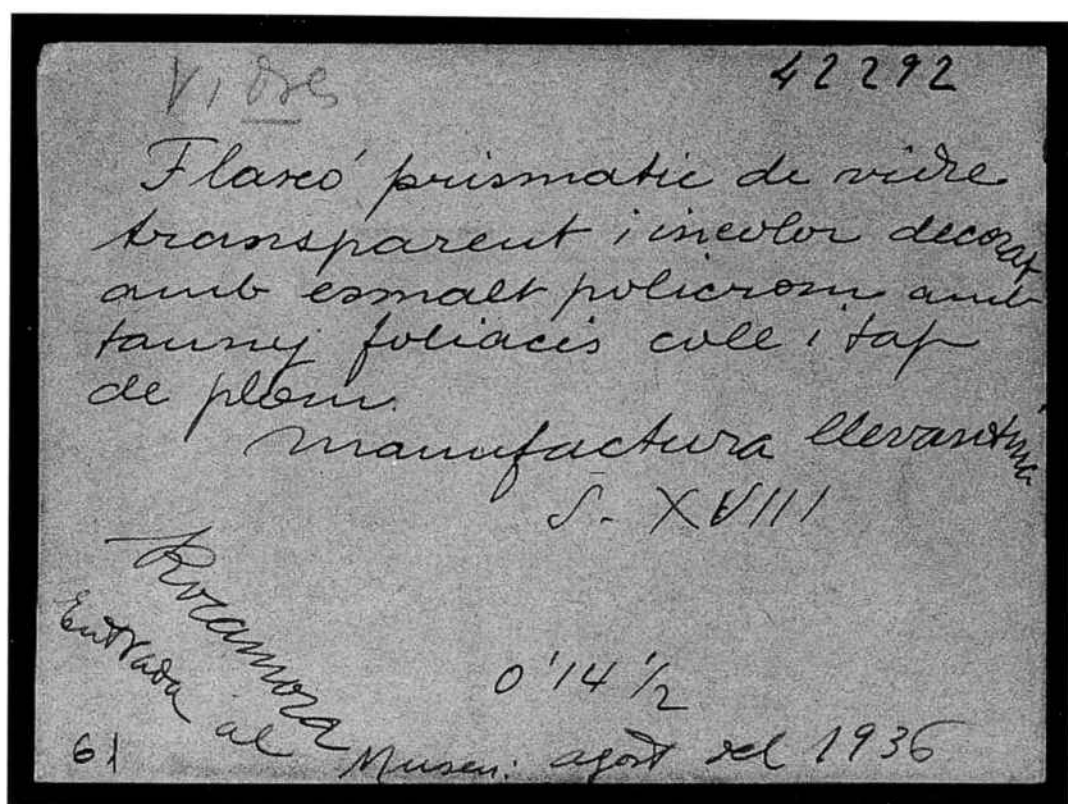 Vidres
42292
Flascó prismatic de vidre
transparent i incolor decorat
amb esmalt policrom amb
tanny foliacis coll i tap
de plom.
manufactura llevantina
S. XVIII
Rocamora
0'14 1/2
Entrada al Museu: agost del 1936
61